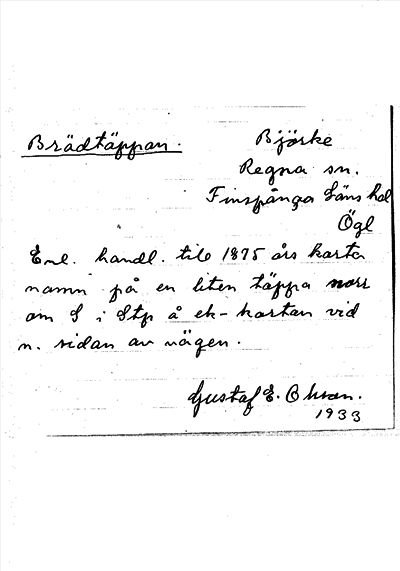 Brädtäppan. Björke
Regna sn.
Finspånga Läns hd
Ögl
Enl. handl. till 1875 års karta
namn på en liten täppa norr
om S i Stp å ek-kartan vid
n. sidan av vägen.
Gustaf E. Ohson.
1933